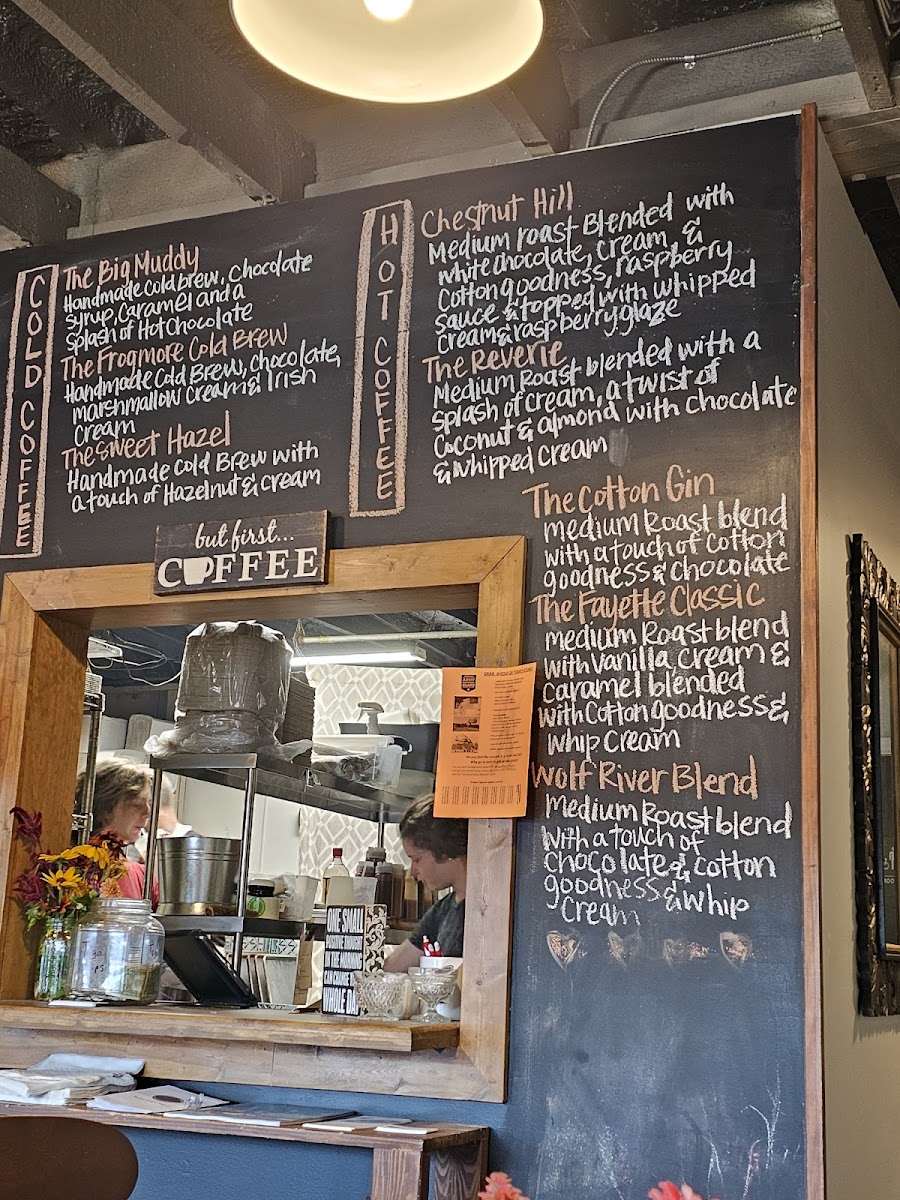 COLD COFFEE
The Big Muddy
Handmade cold brew, Chocolate
syrup, caramel and a
splash of Hot Chocolate
The Frogmore Cold Brew
Handmade Cold Brew, chocolate,
marshmallow Cream & Irish
Cream
The Sweet Hazel
Handmade cold Brew with
a touch of Hazelnut & cream
HOT COFFEE
Chestnut Hill
Medium roast Blended with
white chocolate, cream, &
Cotton goodness, raspberry
sauce & topped with whipped
cream & raspberry glaze
The Reverie
Medium Roast blended with a
splash of cream, a twist of
Coconut & almond with chocolate
& whipped cream
The Cotton Gin
medium Roast blend
with a touch of cotton
goodness & chocolate
The Fayette Classic
medium Roast blend
with vanilla, cream &
caramel blended
with Cotton goodness &
whip cream
Wolf River Blend
Medium Roast blend
with a touch of
chocolate & cotton
goodness & whip
cream
but first...
COFFEE
ONE SMALL
POSITIVE THOUGHT
IN THE MORNING
CAN CHANGE YOUR
WHOLE DAY